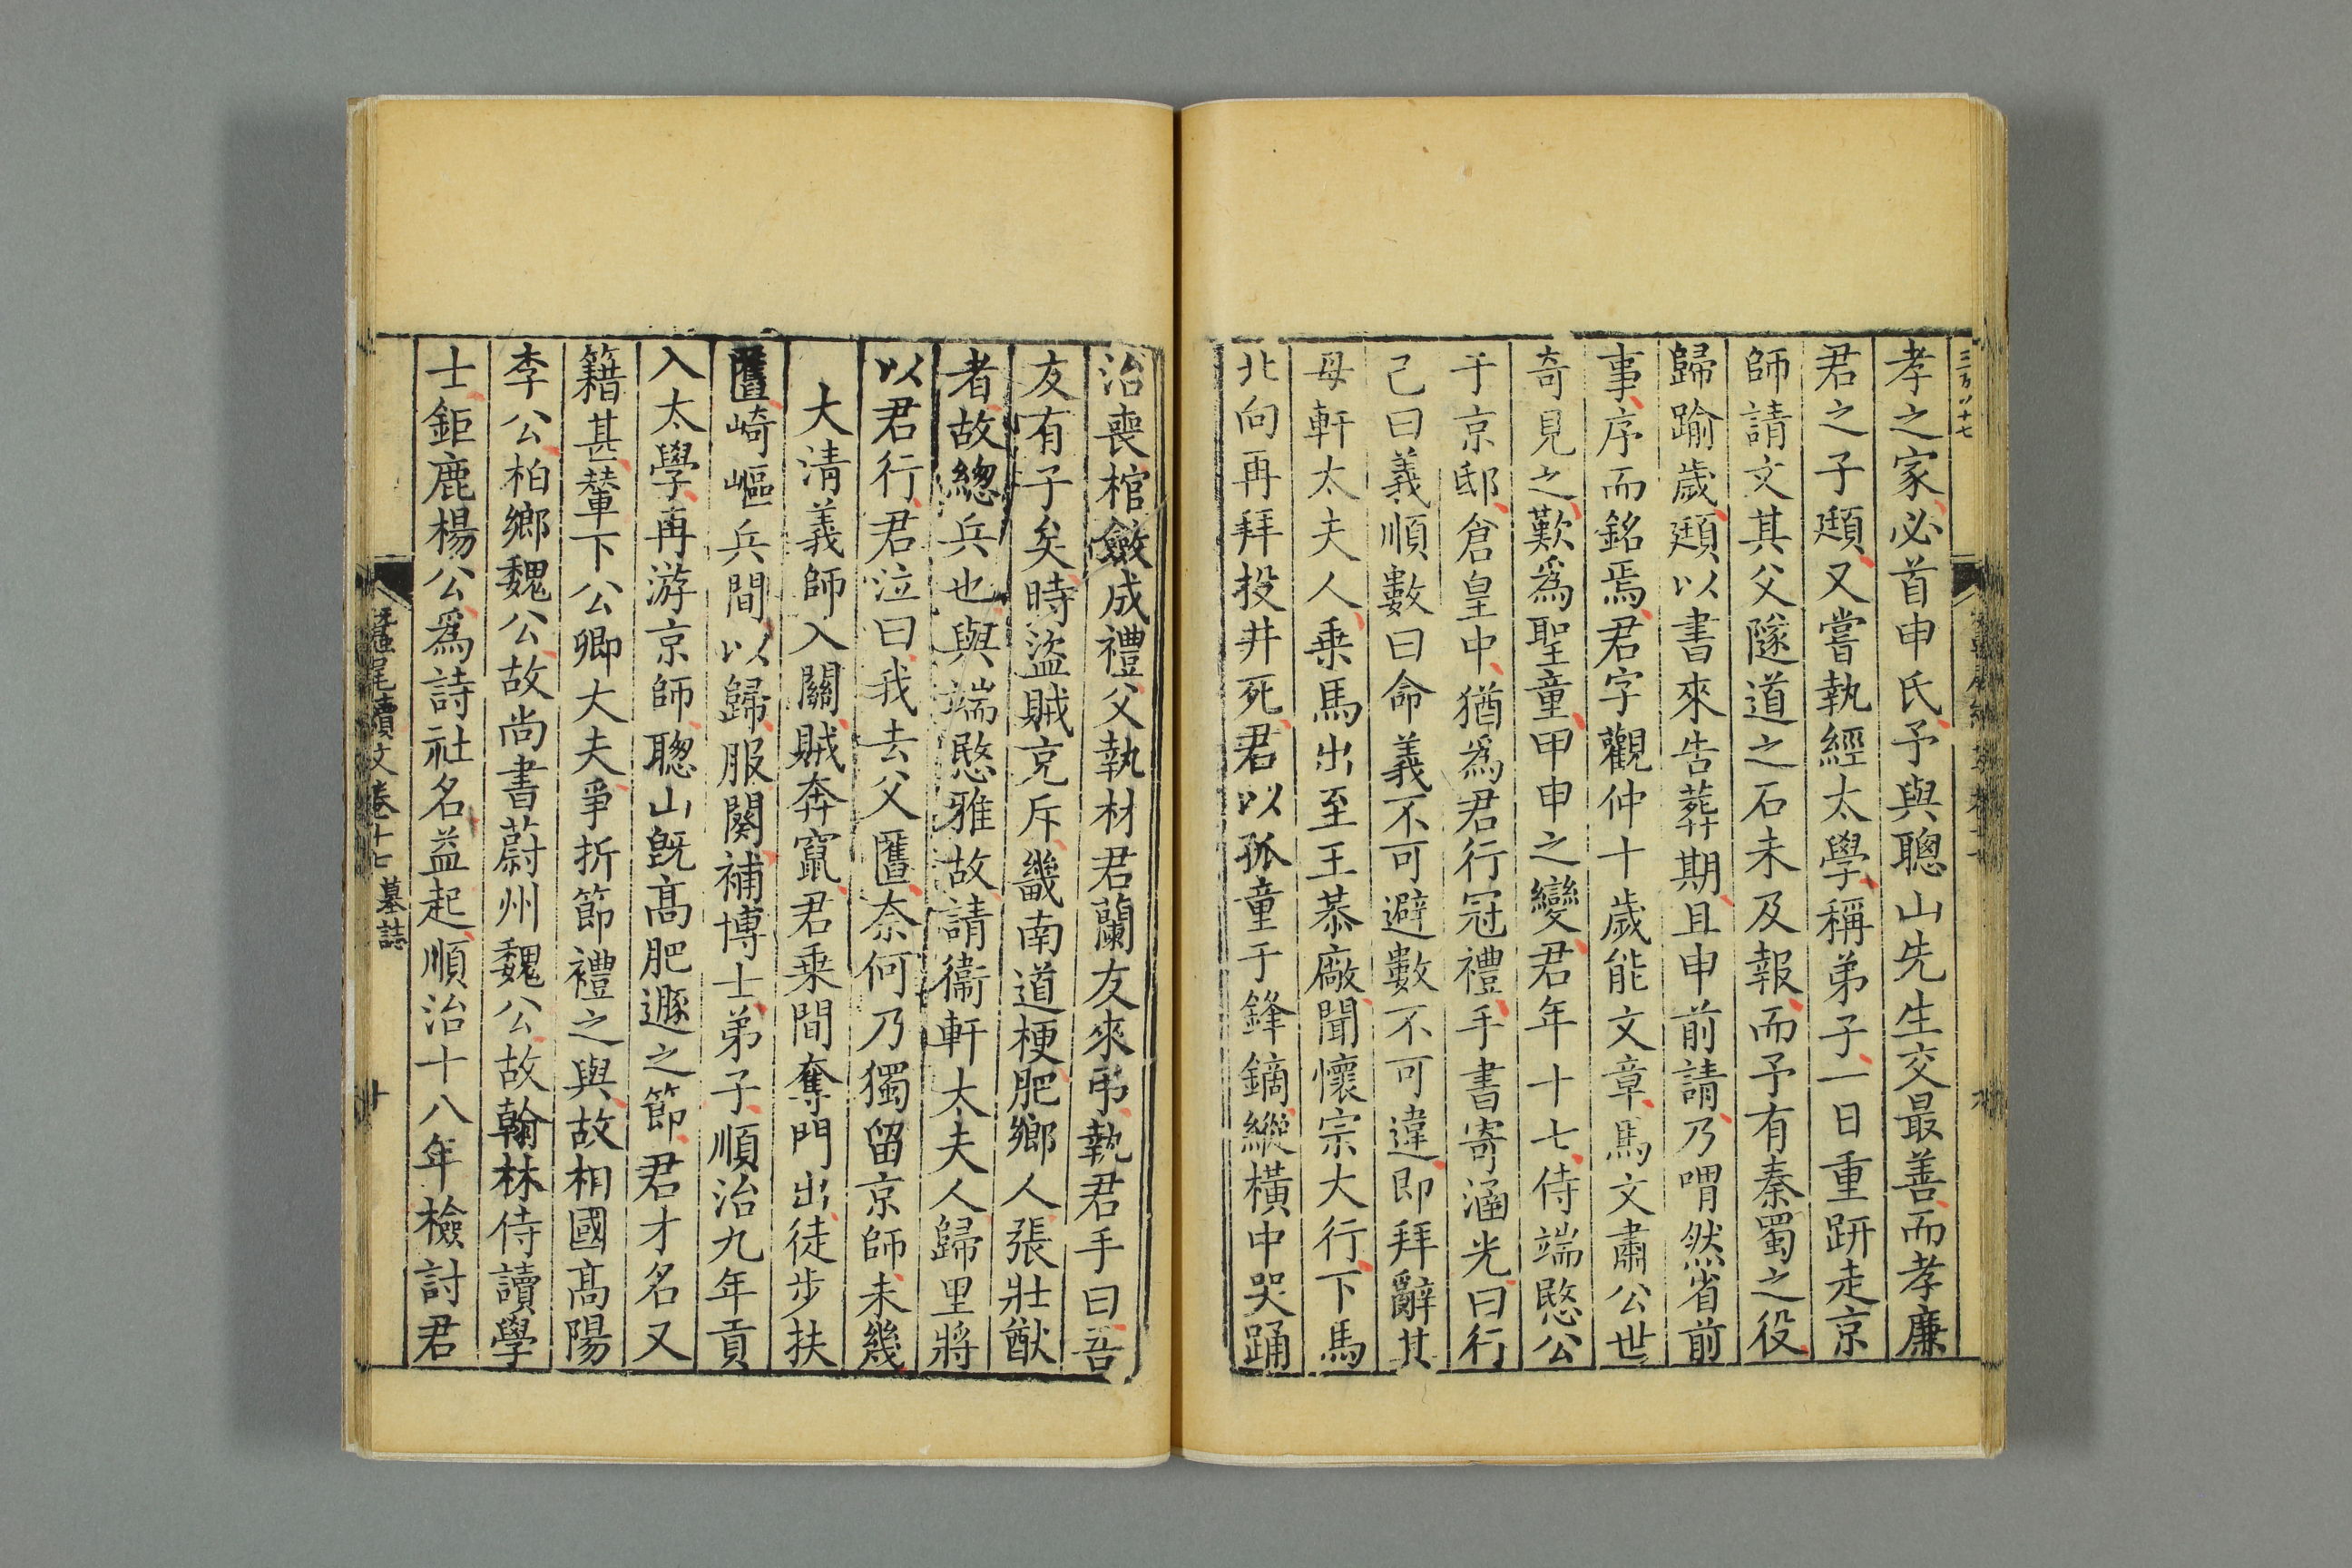 孝之家必首申氏予與聰山先生交最善而孝廉
君之子頲又嘗執經太學稱弟子一日重趼走京
師請文其父隧道之石未及報而予有秦蜀之役
歸踰歲頲以書來告葬期且申前請乃喟然省前
事序而銘焉君字觀仲十歲能文章馬文肅公世
奇見之歎爲聖童甲申之變君年十七侍端愍公
于京邸倉皇中猶爲君行冠禮手書寄涵光曰行
己曰義順數曰命義不可避數不可違即拜辭其
母軒太夫人乗馬出至王恭廠聞懷宗大行下馬
北向再拜投井死君以孤童于鋒鏑縱橫中哭踊
治喪棺斂成禮父執材君蘭友來弔執君手曰吾
友有子矣時盜賊充斥畿南道梗肥鄉人張壯猷
者故總兵也與端愍雅故請衞軒太夫人歸里將
以君行君泣曰我去父匶奈何乃獨留京師未幾
大清義師入關賊奔竄君乗間奪門出徒步扶
匶崎嶇兵間以歸服闋補博士弟子順治九年貢
入太學再游京師聰山旣髙肥遯之節君才名又
籍甚輦下公卿大夫爭折節禮之與故相國髙陽
李公柏鄉魏公故尚書蔚州魏公故翰林侍讀學
士鉅鹿楊公爲詩社名益起順治十八年檢討君
蠶尾續文卷十七 墓誌 十